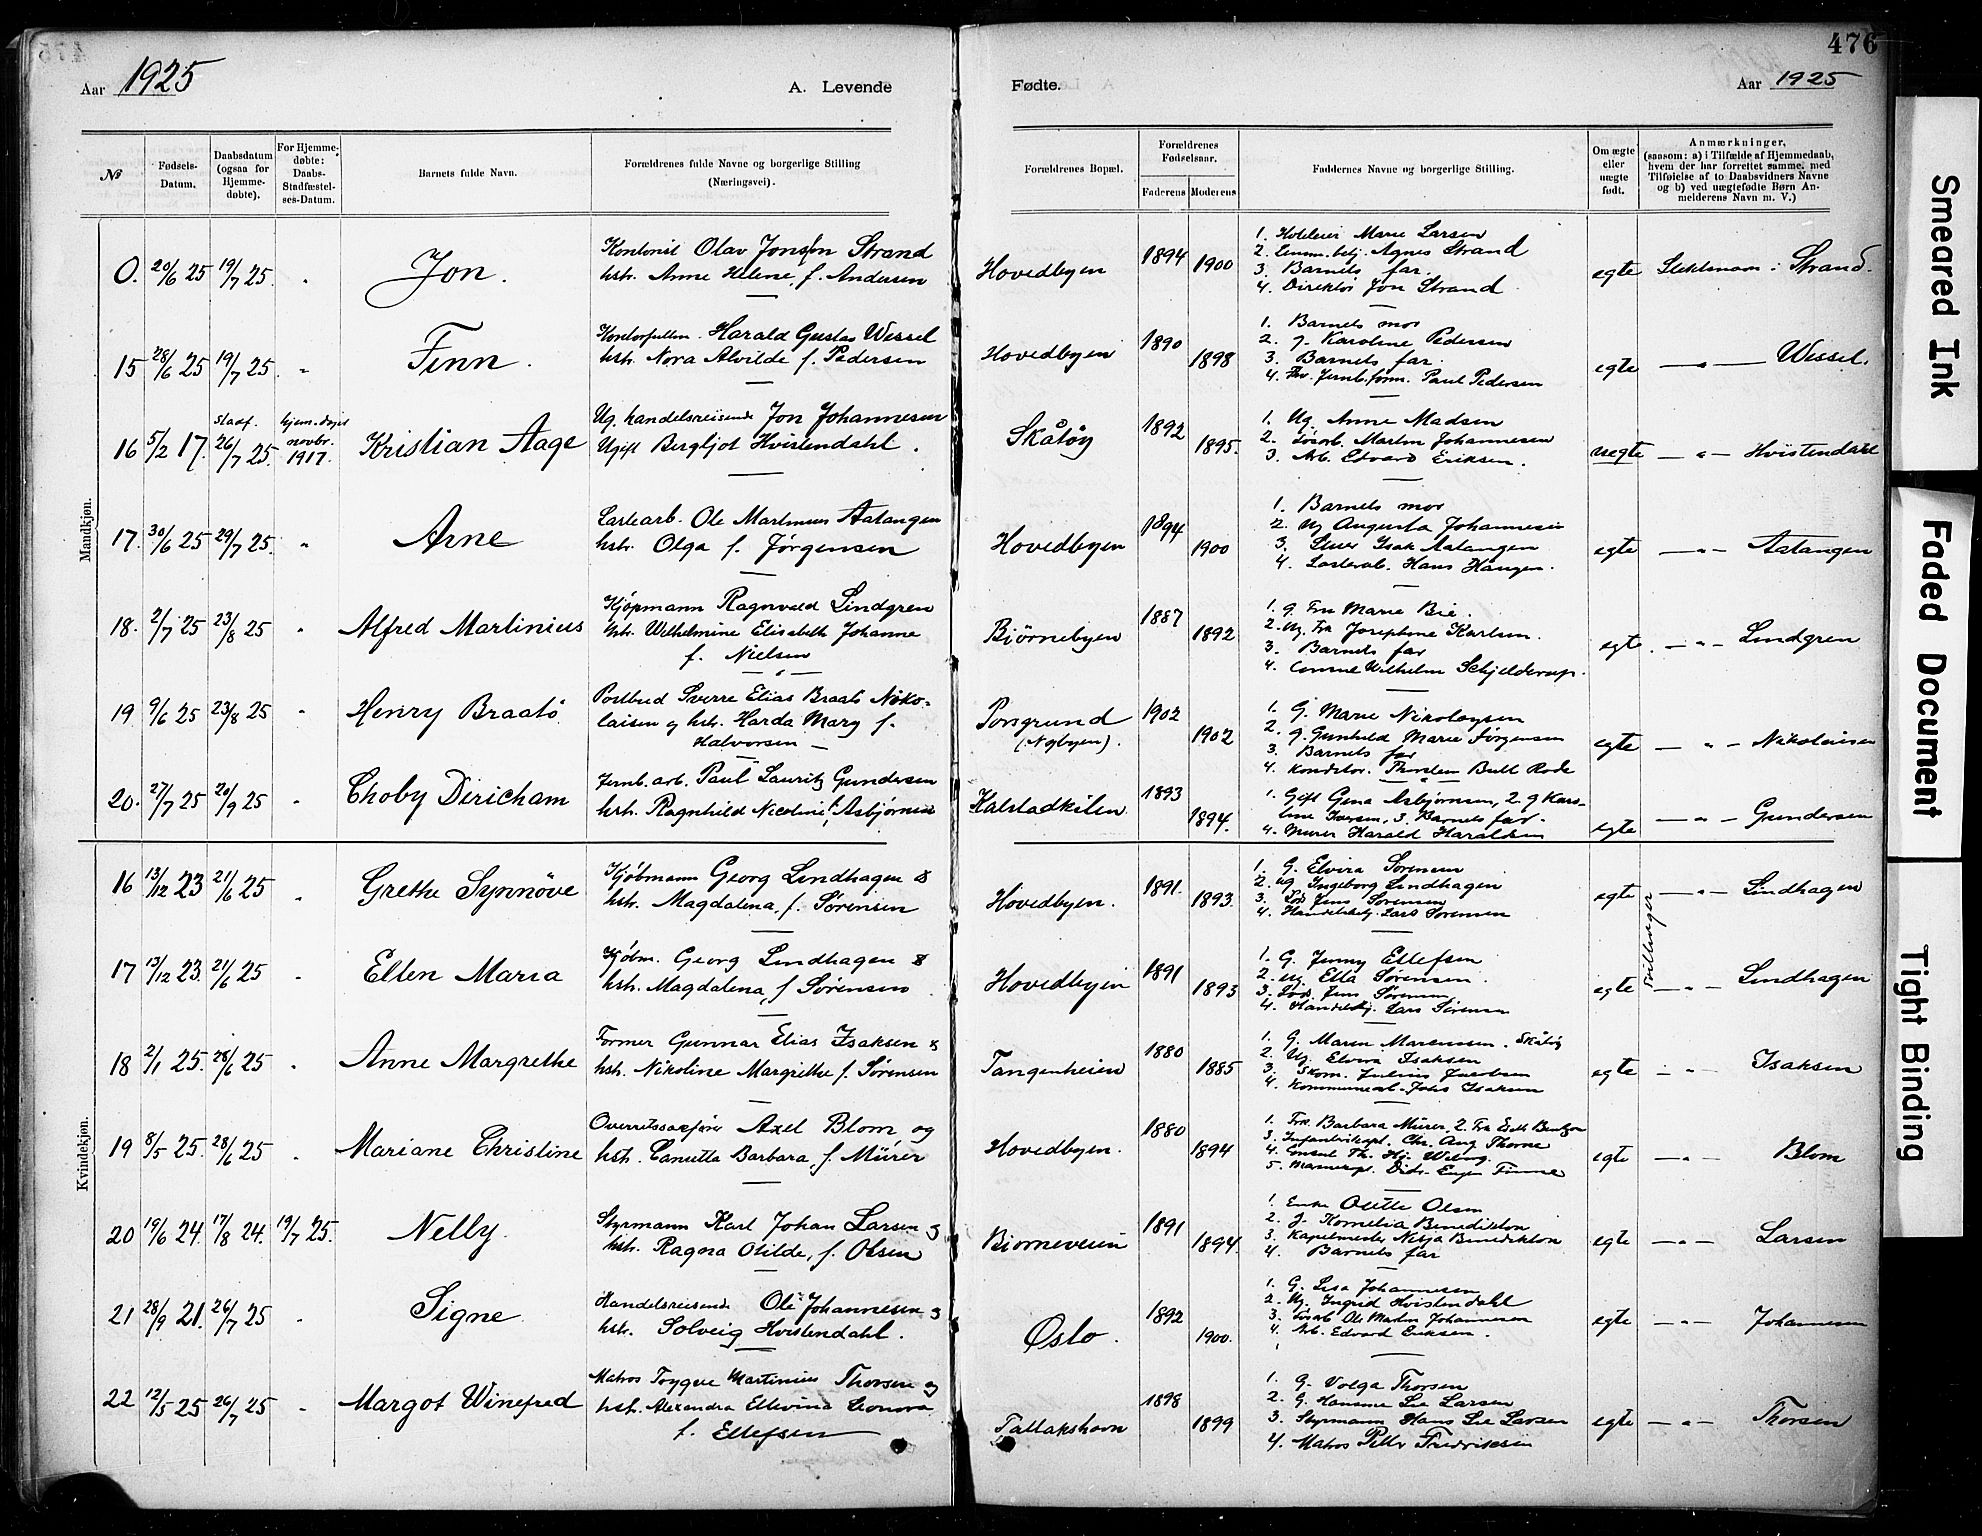 476
Aar 1925
A. Levende
Fødte.
Aar 1925
№
Fødsels-
Datum.
Daabsdatum
(ogsaa for
Hjemme-
døbte).
For Hjemme-
døbte:
Daabs-
Stadfæstel-
ses-Datum.
Barnets fulde Navn.
Forældrenes fulde Navne og borgerlige Stilling
(Næringsvei).
Forældrenes Bopæl.
Forældrenes
Fødselsaar.
Faderens
Moderens
Faddernes Navne og borgerlige Stilling.
Om ægte
eller
uægte
født.
Anmærkninger,
(saasom: a) i Tilfælde af Hjemmedaab,
hvem der har forrettet samme, med
Tilføielse af to Daabsvidners Navne
og b) ved uægtefødte Børn An-
melderens Navn m. V.)
Mandkjøn.
0. 20/6 25 19/7 25. " Jon.
Kontorist Olav Jonsen Strand
hstr. Anne Helene, f. Andersen
Hovedbyen 1894 1900
1. Hoteleier Marie Larsen
2. Agnes Strand
3. Barnets far.
4. Direktør Jon Strand
egte Slektsnavn: Strand.
15 28/6 25 19/7 25. " Finn.
Kontorfullm. Harald Gustav Wessel
hstr. Nora Alvilde f. Pedersen
Hovedbyen 1890 1898
1. Barnets mor
2. g. Karoline Pedersen
3. Barnets far.
4. Jernb.form. Paul Pedersen
egte — " — Wessel.
16 5/2 17. stadf. 26/7 25. hjem. døpt novbr. 1917. Kristian Aage
Ug. handelsreisende Jon Johannesen
Ugift Bergljot Hvistendahl.
Skåtøy 1892 1895.
1. Ug. Anne Madsen
2. Martin Johannesen
3. Arb. Edvard Eriksen.
uegte — " — Hvistendahl
17. 30/6 25 29/7 25. " Arne
Lastearb. Ole Martinius Aatangen
hstr. Olga f. Jørgensen
Hovedbyen 1894 1900
1. Barnets mor
2. Ug Augusta Johannesen
3. Isak Aatangen
4. Hans Haugen.
egte — " — Aatangen
18. 2/7 25 23/8 25 " Alfred Martinius
Kjøpmann Ragnvald Lindgren
hstr. Wilhelmine Elisabeth Johanne
f. Nielsen
Bjørnebyen 1887 1892
1. g. Fru Marie Bie.
2. Ug. Frk Josephine Karlsen.
3. Barnets far
4. Consul Wilhelm Schjelderup.
egte. — " — Lindgren
19 9/6 25 23/8 25 " Henry Braatö
Postbud Sverre Elias Braatö Niko-
laisen og hstr. Harda Mary f.
Halvorsen —
Porsgrund
(Nybyen).
1902 1902
1. G. Marie Nikolaysen
2. g. Gunhild Marie Jørgensen
3. Barnets far
4. Konditor. Thorsten Bull Rode
egte — " — Nikolaisen
20. 27/7 25 20/9 25 " Choby Diricham
Jernb.arb. Paul Lauritz Gundersen
hstr. Ragnhild Nicoline f. Asbjørnsen
Kalstadkilen 1893 1894.
1. Gift Gina Asbjørnsen, 2. g Karo-
line Iversen, 3. Barnets far.
4. Murer Harald Haraldsen
egte — " — Gundersen
Kvindekjøn.
16 13/12 23 21/6 25 " Grethe Synnöve
Kjøbmann Georg Lindhagen &
hstr. Magdalena, f. Sørensen
Hovedbyen. 1891. 1893.
1. G. Elvira Sørensen
2. ug Ingeborg Lindhagen
3. Jens Sørensen
4. Handelsbetj. Lars Sørensen
egte — " — Lindhagen
tvillinger
17 13/12 23. 21/6 25 " Ellen Maria
Kjøbm. Georg Lindhagen &
hstr. Magdalena, f Sørensen
Hovedbyen 1891 1893
1. G. Jenny Ellefsen
2. ug Ella Sørensen.
3. Jens Sørensen
4. Handelsbtj. Lars Sørensen
egte — " — Lindhagen
18 2/1 25. 28/6 25 " Anne Margrethe
Former Gunnar Elias Isaksen &
hstr. Nikoline Margrethe f. Sørensen
Tangenheien 1880 1885
1. G. Maren Marenssen. Skåtöy
2. Ug. Elvira Isaksen
3. Skom. Julius Jacobsen
4. Kommunearb. Johs Isaksen
egte — " — Isaksen
19 8/5 25. 28/6 25 " Mariane Christine
Overretssakfører Axel Blom og
hstr. Canutta Barbara, f. Mürer
Hovedbyen. 1880 1894
1. Frk. Barbara Mürer, 2. Frk
3. Infanterikapt. Chr. Aug Thorne
4. Consul Th.
5.
egte — " — Blom
20 19/6 24. 17/8 24. 19/7 25. Nelly.
Styrmann Karl Johan Larsen og
hstr. Ragna Otilde, f. Olsen
Bjørneveien 1891 1894.
1. Enke Olette Olsen
2. g. Kornelia Benediktson
3. Kapelmester Benediktson
4. Barnets far
egte — " — Larsen
21 28/9 21. 26/7 25 " Signe
Handelsreisende Ole Johannesen og
hstr. Solveig Hvistendahl.
Oslo. 1892 1900.
1. G. Lisa Johannesen
2. Ug. Ingrid Hvistendahl
3. Ole Martin Johannesen
4. Arb. Edvard Eriksen.
egte — " — Johannesen
22 12/5 25 26/7 25 " Margot Winefred
Matros Trygve Martinius Thorsen og
hstr. Alexandra Ellevina Leonora
f. Ellefsen
Tallakshavn 1898 1899
1. G. Volga Thorsen
2. G. Hansine Lie Larsen
3. Styrmann Hans Lie Larsen
4. Matros Petter Fredriksen
egte — " — Thorsen
Smeared Ink
Faded Document
Tight Binding